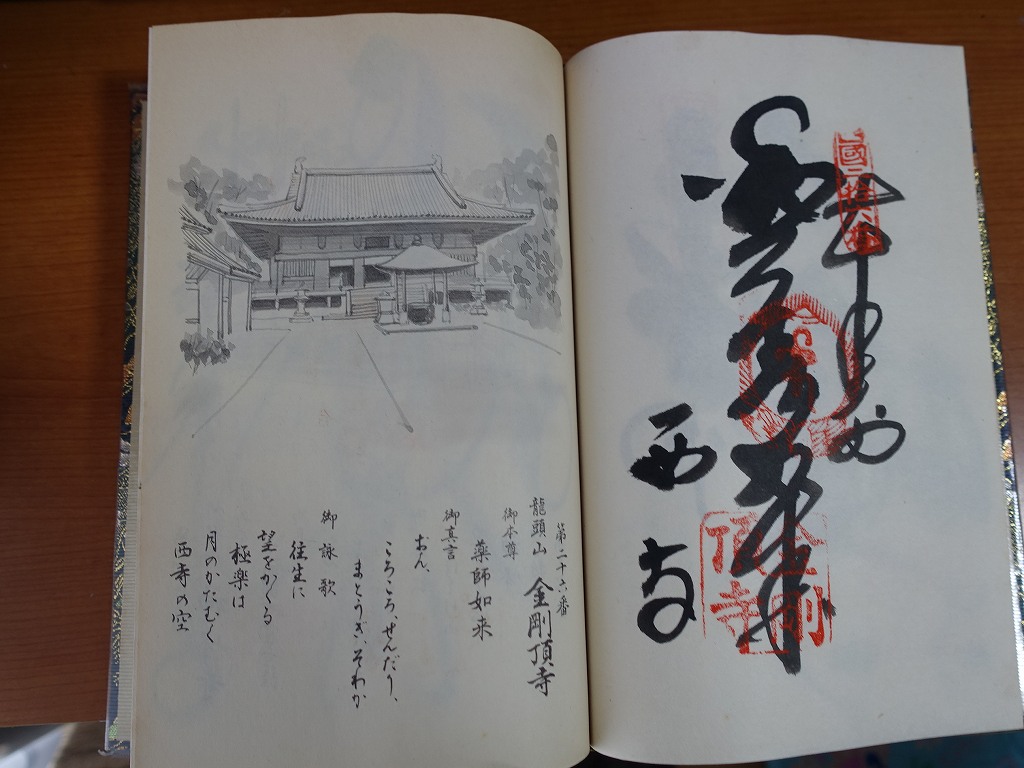 國二拾六番
金剛
頂寺
西寺
第二十六番
龍頭山 金剛頂寺
御本尊
薬師如来
御真言
おん、
ころころ、せんだり、
まとうぎ、そわか
御詠歌
往生に
望をかくる
極楽は
月のかたむく
西寺の空